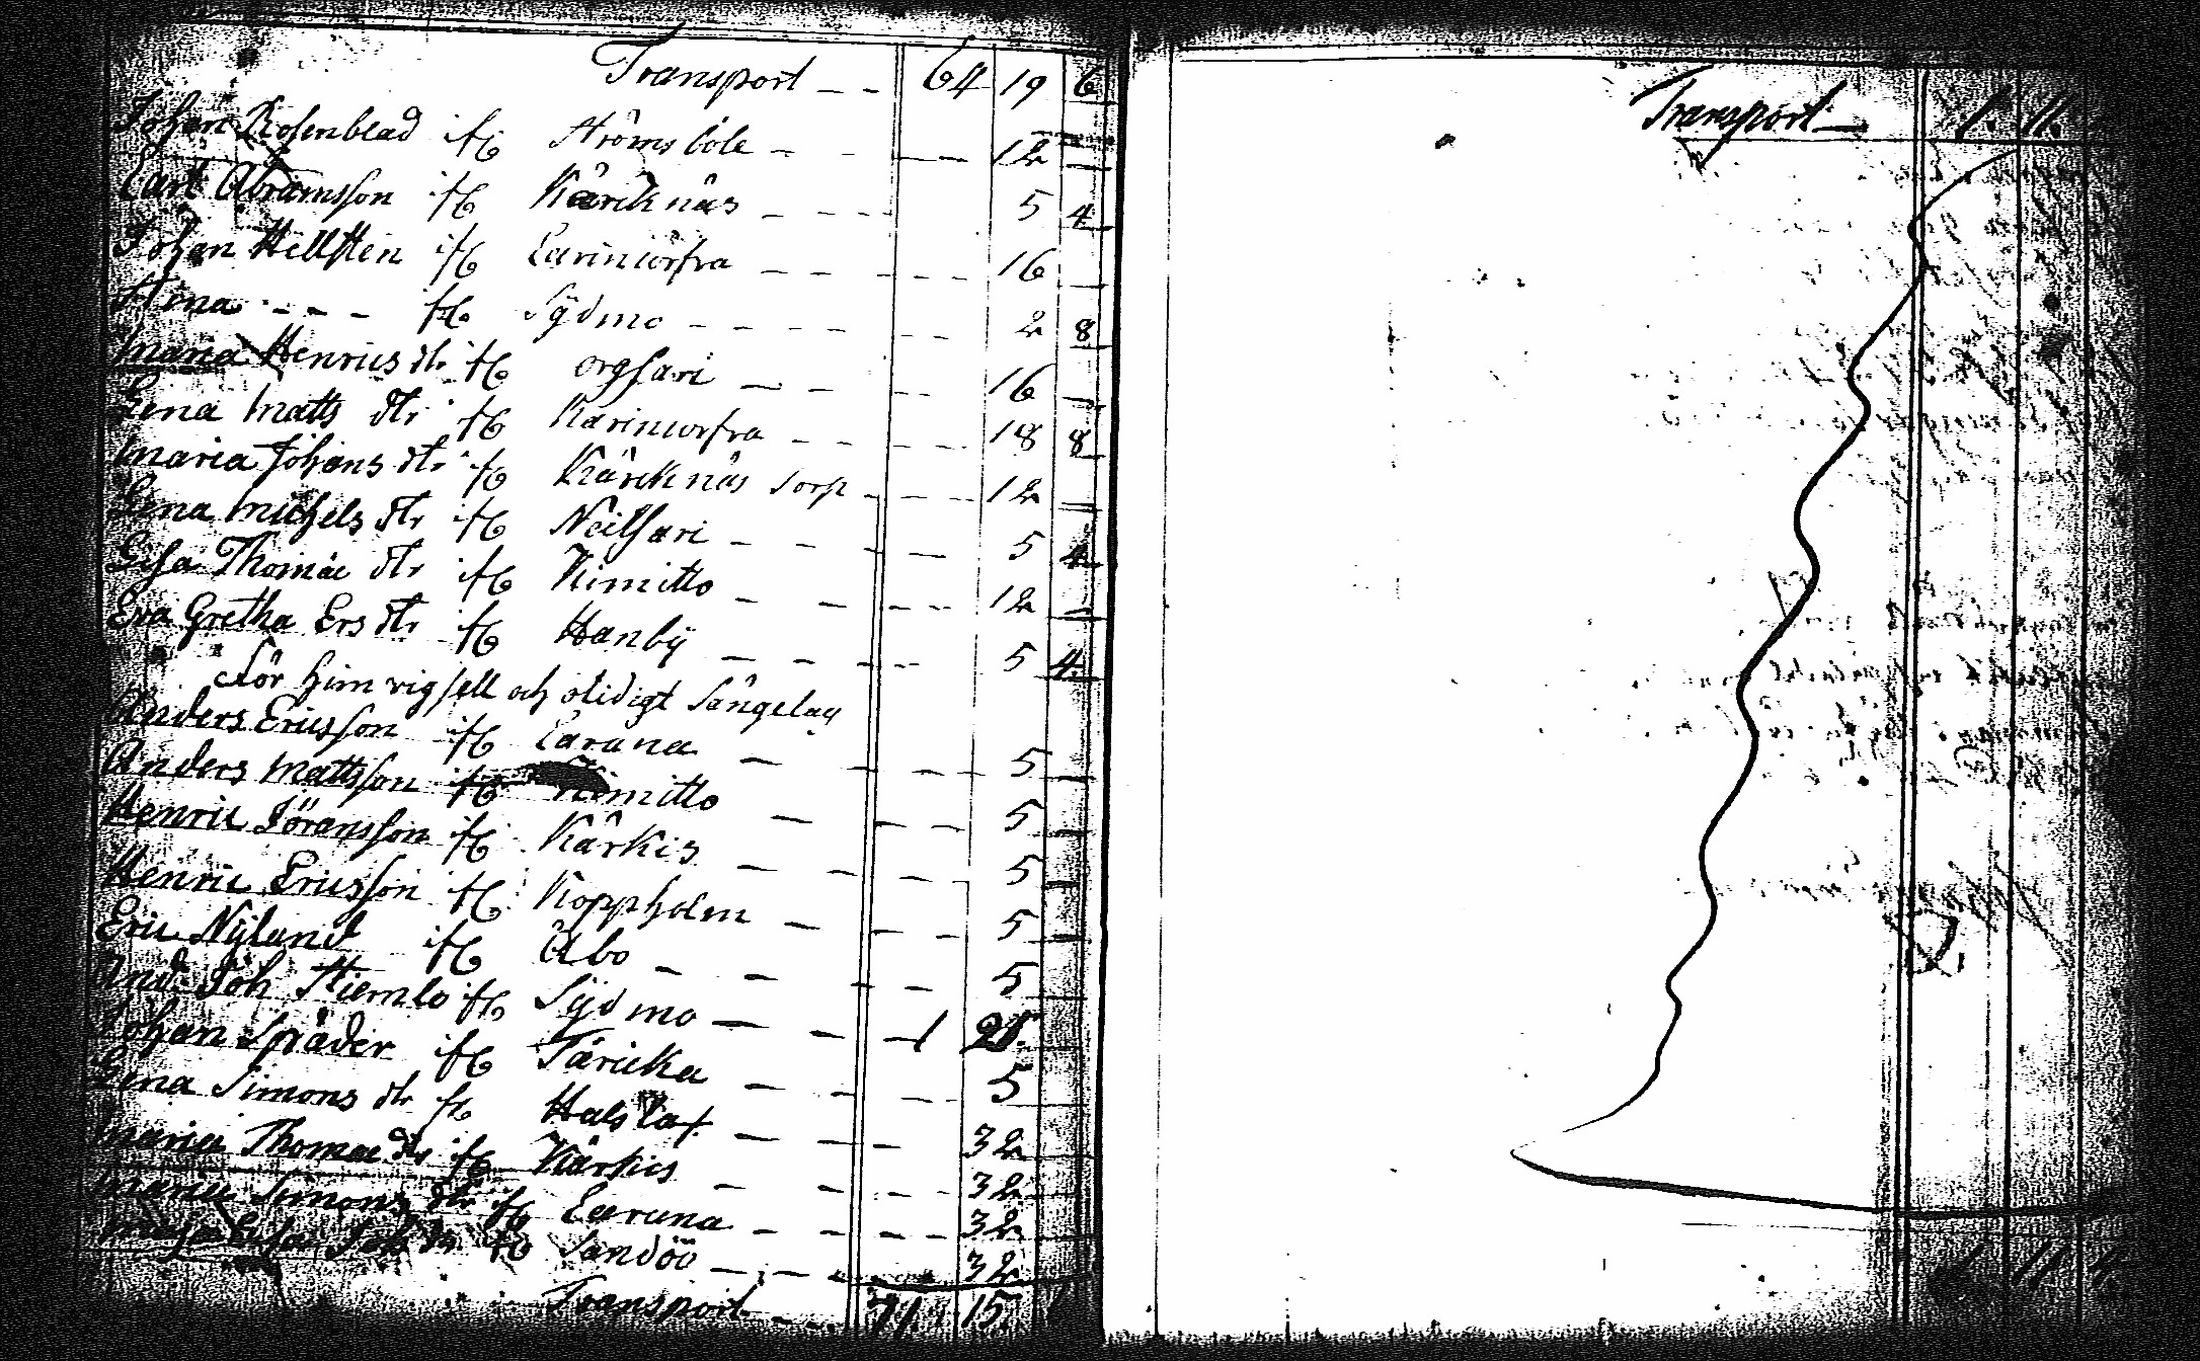 Transport - - 64 19 6
Johan Rosenblad ifr Strömsböle - - - 12 -
Carl Abramsson ifr Kärcknäs - - - - 5 4
Johan Hellsten ifr Carinicorfra - - - 16 -
Stina - - - fr Sydmo - - - - 2 8
Maria Henrics dtr ifr orgsari - - - 16 -
Lena Matts dtr ifr Karinicorfra - - - 18 8
Maria Johans dtr ifr Kärcknäs torp - - 12 -
Lena Michels dtr ifr Neilsari - - - 5 4
Lisa Thomæ dtr ifr Kimitto - - - 12 -
Eva Gretha Ers dtr ifr Hanby - - - 5 4.
För him vigsell och otidigt Sängelag
Anders Ericsson ifr Carana - - - 5 -
Anders Mattsson ifr Kimitto - - - 5 -
Henric Jöransson ifr Kärkis - - - 5 -
Henric Ericsson ifr Koppholm - - - 5 -
Eric Nylund ifr Åbo - - - 5
And. Joh Stiernlo ifr Sydmo - - 1
Johan Spader ifr Täricka - - - 5
Lena Simons dtr fr Halslax - - 32
Maria Thomæ dtr ifr Kärkis - - - 32
Maria Simons dtr ifr Carana - - - 32
ifr Sandöö - - - 32
Transport - - 71. 15.
Transport - 1. 11.
1. 11